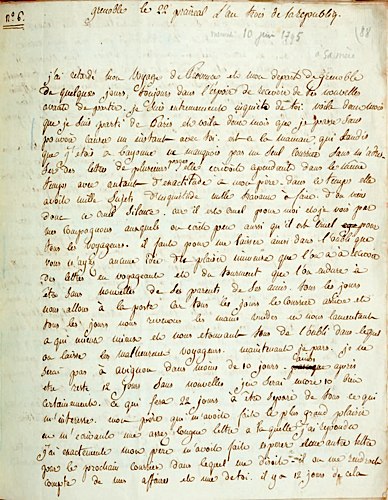 n° 6.
grenoble le 22 prairial l'an trois de la republiq.
10 juin 1795
88
à Sauveur
j'ai retardé mon voyage de Provence et mon depart de grenoble
de quelques jours, toujours dans l'espoir de recevoir de tes nouvelles
avant de partir. je suis extremement inquiete de toi. voila deux mois
que je suis parti de Paris et voila deux mois que je passe sans
pouvoir causer un instant avec toi. et la maman qui tandis
que j'etois à Bayonne ne manquoit pas un seul courrier sans m'adres
ser des lettres de plusieurs pages, elle ecrivoit cependant dans le même
temps avec autant d'exactitude à mon pere. dans ce temps elle
avoit mille sujets d'inquietude mille travaux à faire. d'ou vient
donc ce cruel silence. car il est cruel pour moi eloge vois par
mes compagnons auxquels on ecrit peu aussi qu'il est cruel pour
tous les voyageurs. il faut pour me laisser ainsi dans l'oubli que
vous n'ayez aucune idée du plaisir immense que l'on a à recevoir
des lettres en voyageant et du tourment que l'on endure à
etre sans nouvelles de ses parents de ses amis. tous les jours
nous allons à la porte car tous les jours le courrier arrive et
tous les jours nous revenons les mains vuides en nous lamentant
a qui mieux mieux et nous etonnant tous de l'oubli dans lequel
on laisse les malheureux voyageurs. maintenant je pars. je ne
serai pas à avignon dans moins de 10 jours après
etre resté 12 jours sans nouvelles j'en serai encore 10 bien
certainement. ce qui fera 22 jours à etre separé de tout ce qui
m'interesse. mon pere qui m'avoit fait le plus grand plaisir
en m'ecrivant une assez longue lettre à laquelle j'ai repondu
j'ai exactement mon pere m'avoit fait esperer une autre lettre
pour le prochain courrier dans lequel me disoit-il on me rendroit
compte de mes affaires et de toi. il y a 12 jours de cela